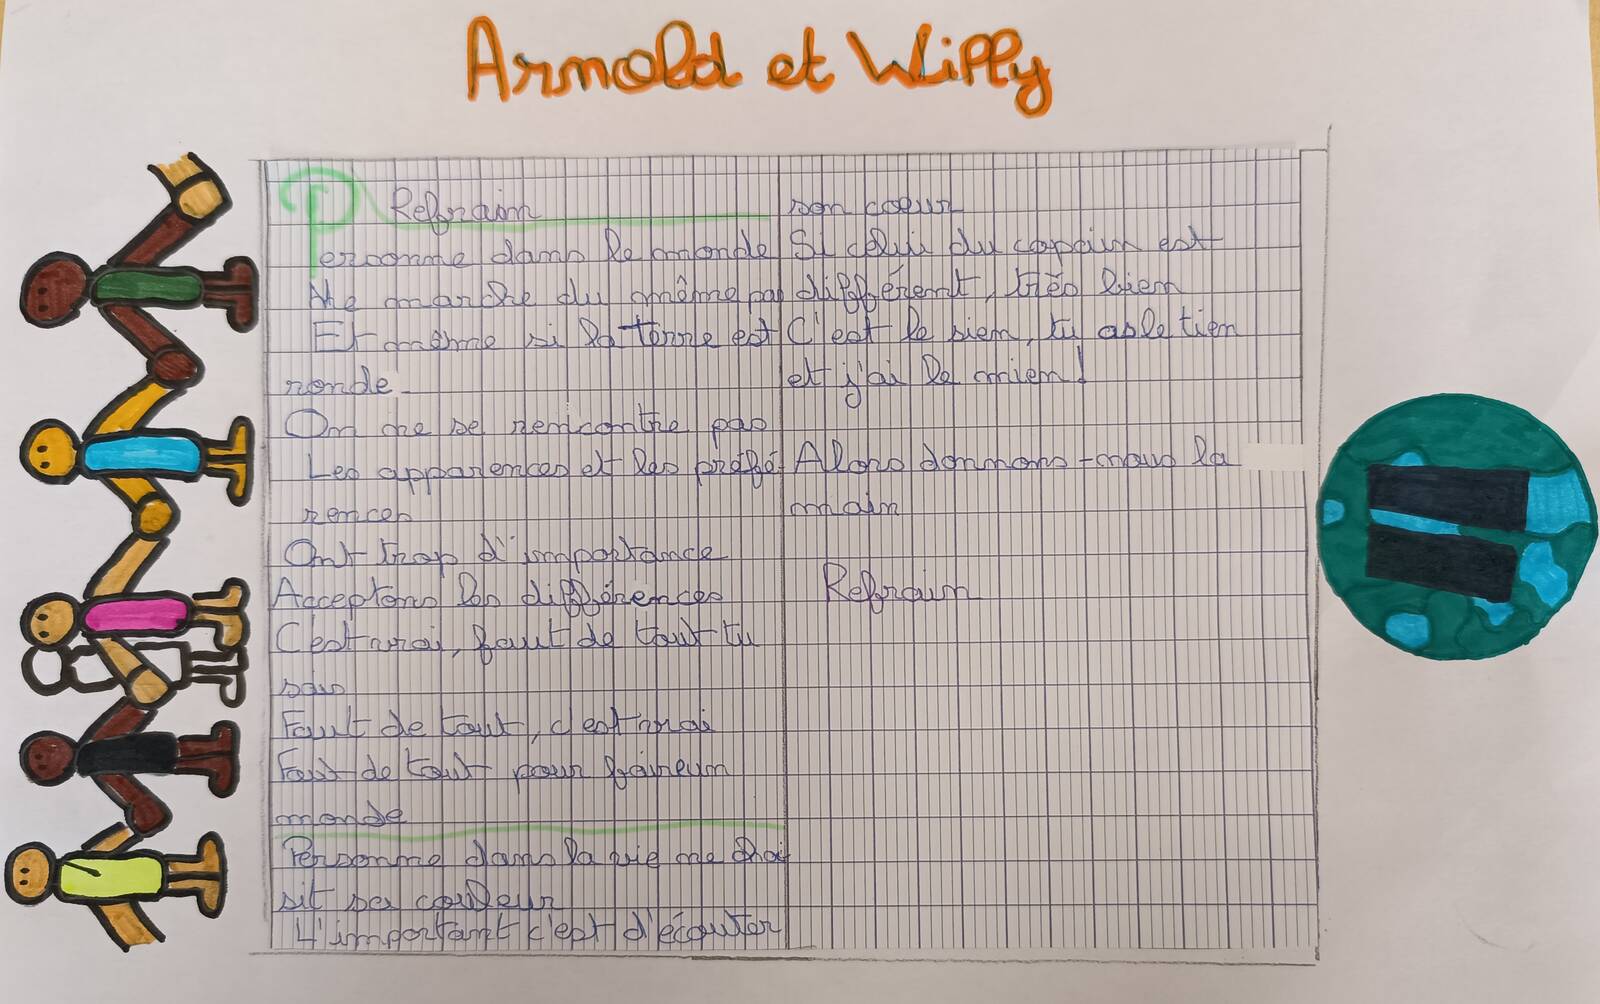 Arnold et Willy
Refrain
Personne dans le monde
Ne marche du même pas
Et même si la terre est
ronde
On ne se rencontre pas
Les apparences et les préfé
rences
Ont trop d'importance
Acceptons les différences
C'est vrai, faut de tout tu
sais
Faut de tout, c'est vrai
Faut de tout pour faire un
monde
Personne dans la vie ne choi
sit sa couleur
L'important c'est d'écouter
son coeur
Si celui du copain est
différent, très bien
C'est le sien, tu as le tien
et j'ai le mien!
Alors donnons-nous la
main
Refrain